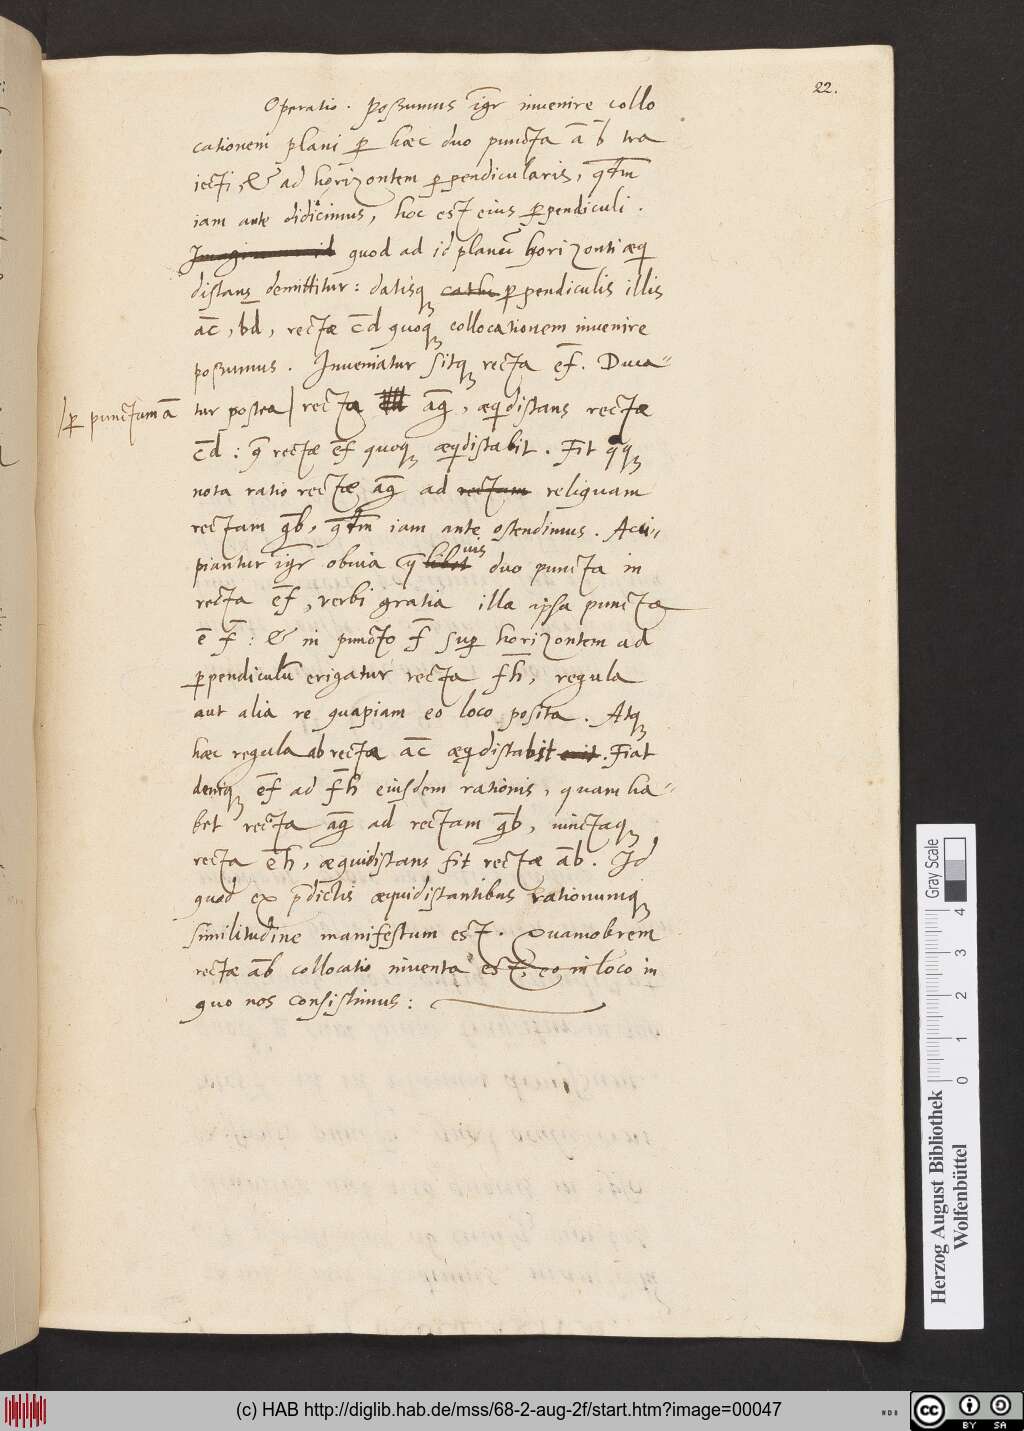 22.
Operatio. Possumus igr̄ invenire collo
cationem plani p̱ hæc duo puncta a̅ b̅ tra
iecti, & ad horizontem p̱pendicularis, q̅t̅m
iam ante didicimus, hoc est eius p̱pendiculi.
quod ad id planū horizonti æq
distans demittitur: datisq̨ p̱pendiculis illis
a̅c̅, b̅d̅, rectæ c̅d̅ quoq̨ collocationem invenire
possumus. Inveniatur sitq̨ recta e̅f̅. Duca=
|p̱ punctum a̅
tur postea| recta a̅g̅, æqdistans rectæ
c̅d̅: q̅ rectæ e̅f̅ quoq̨ æqdistabit. Fit qq̨
nota ratio rectæ a̅g̅ ad rectam reliquam
rectam g̅b̅, q̅t̅m iam ante ostendimus. Acci=
piantur igr̄ obvia duo puncta in
recta e̅f̅, verbi gratia illa ipsa puncta
e̅ f̅: & in puncto f̅ sup̱ horizontem ad
p̱pendiculū erigatur recta f̅h̅, regula
aut alia re quapiam eo loco posita. Atq̨
hæc regula ab recta a̅c̅ æqdistabit erit. Fiat
deniq̨ e̅f̅ ad f̅h̅ eiusdem rationis, quam ha=
bet recta a̅g̅ ad rectam g̅b̅, iunctaq̨
recta e̅h̅, æquidistans fit rectæ a̅b̅. Id
quod ex p̄dictis æquidistantibus rationumq̨
similitudine manifestum est. Quamobrem
rectæ a̅b̅ collocatio inventa est, eo in loco in
quo nos consistimus:
Gray Scale
0 1 2 3 4
Herzog August Bibliothek
Wolfenbüttel
(c) HAB http://diglib.hab.de/mss/68-2-aug-2f/start.htm?image=00047
cc BY SA